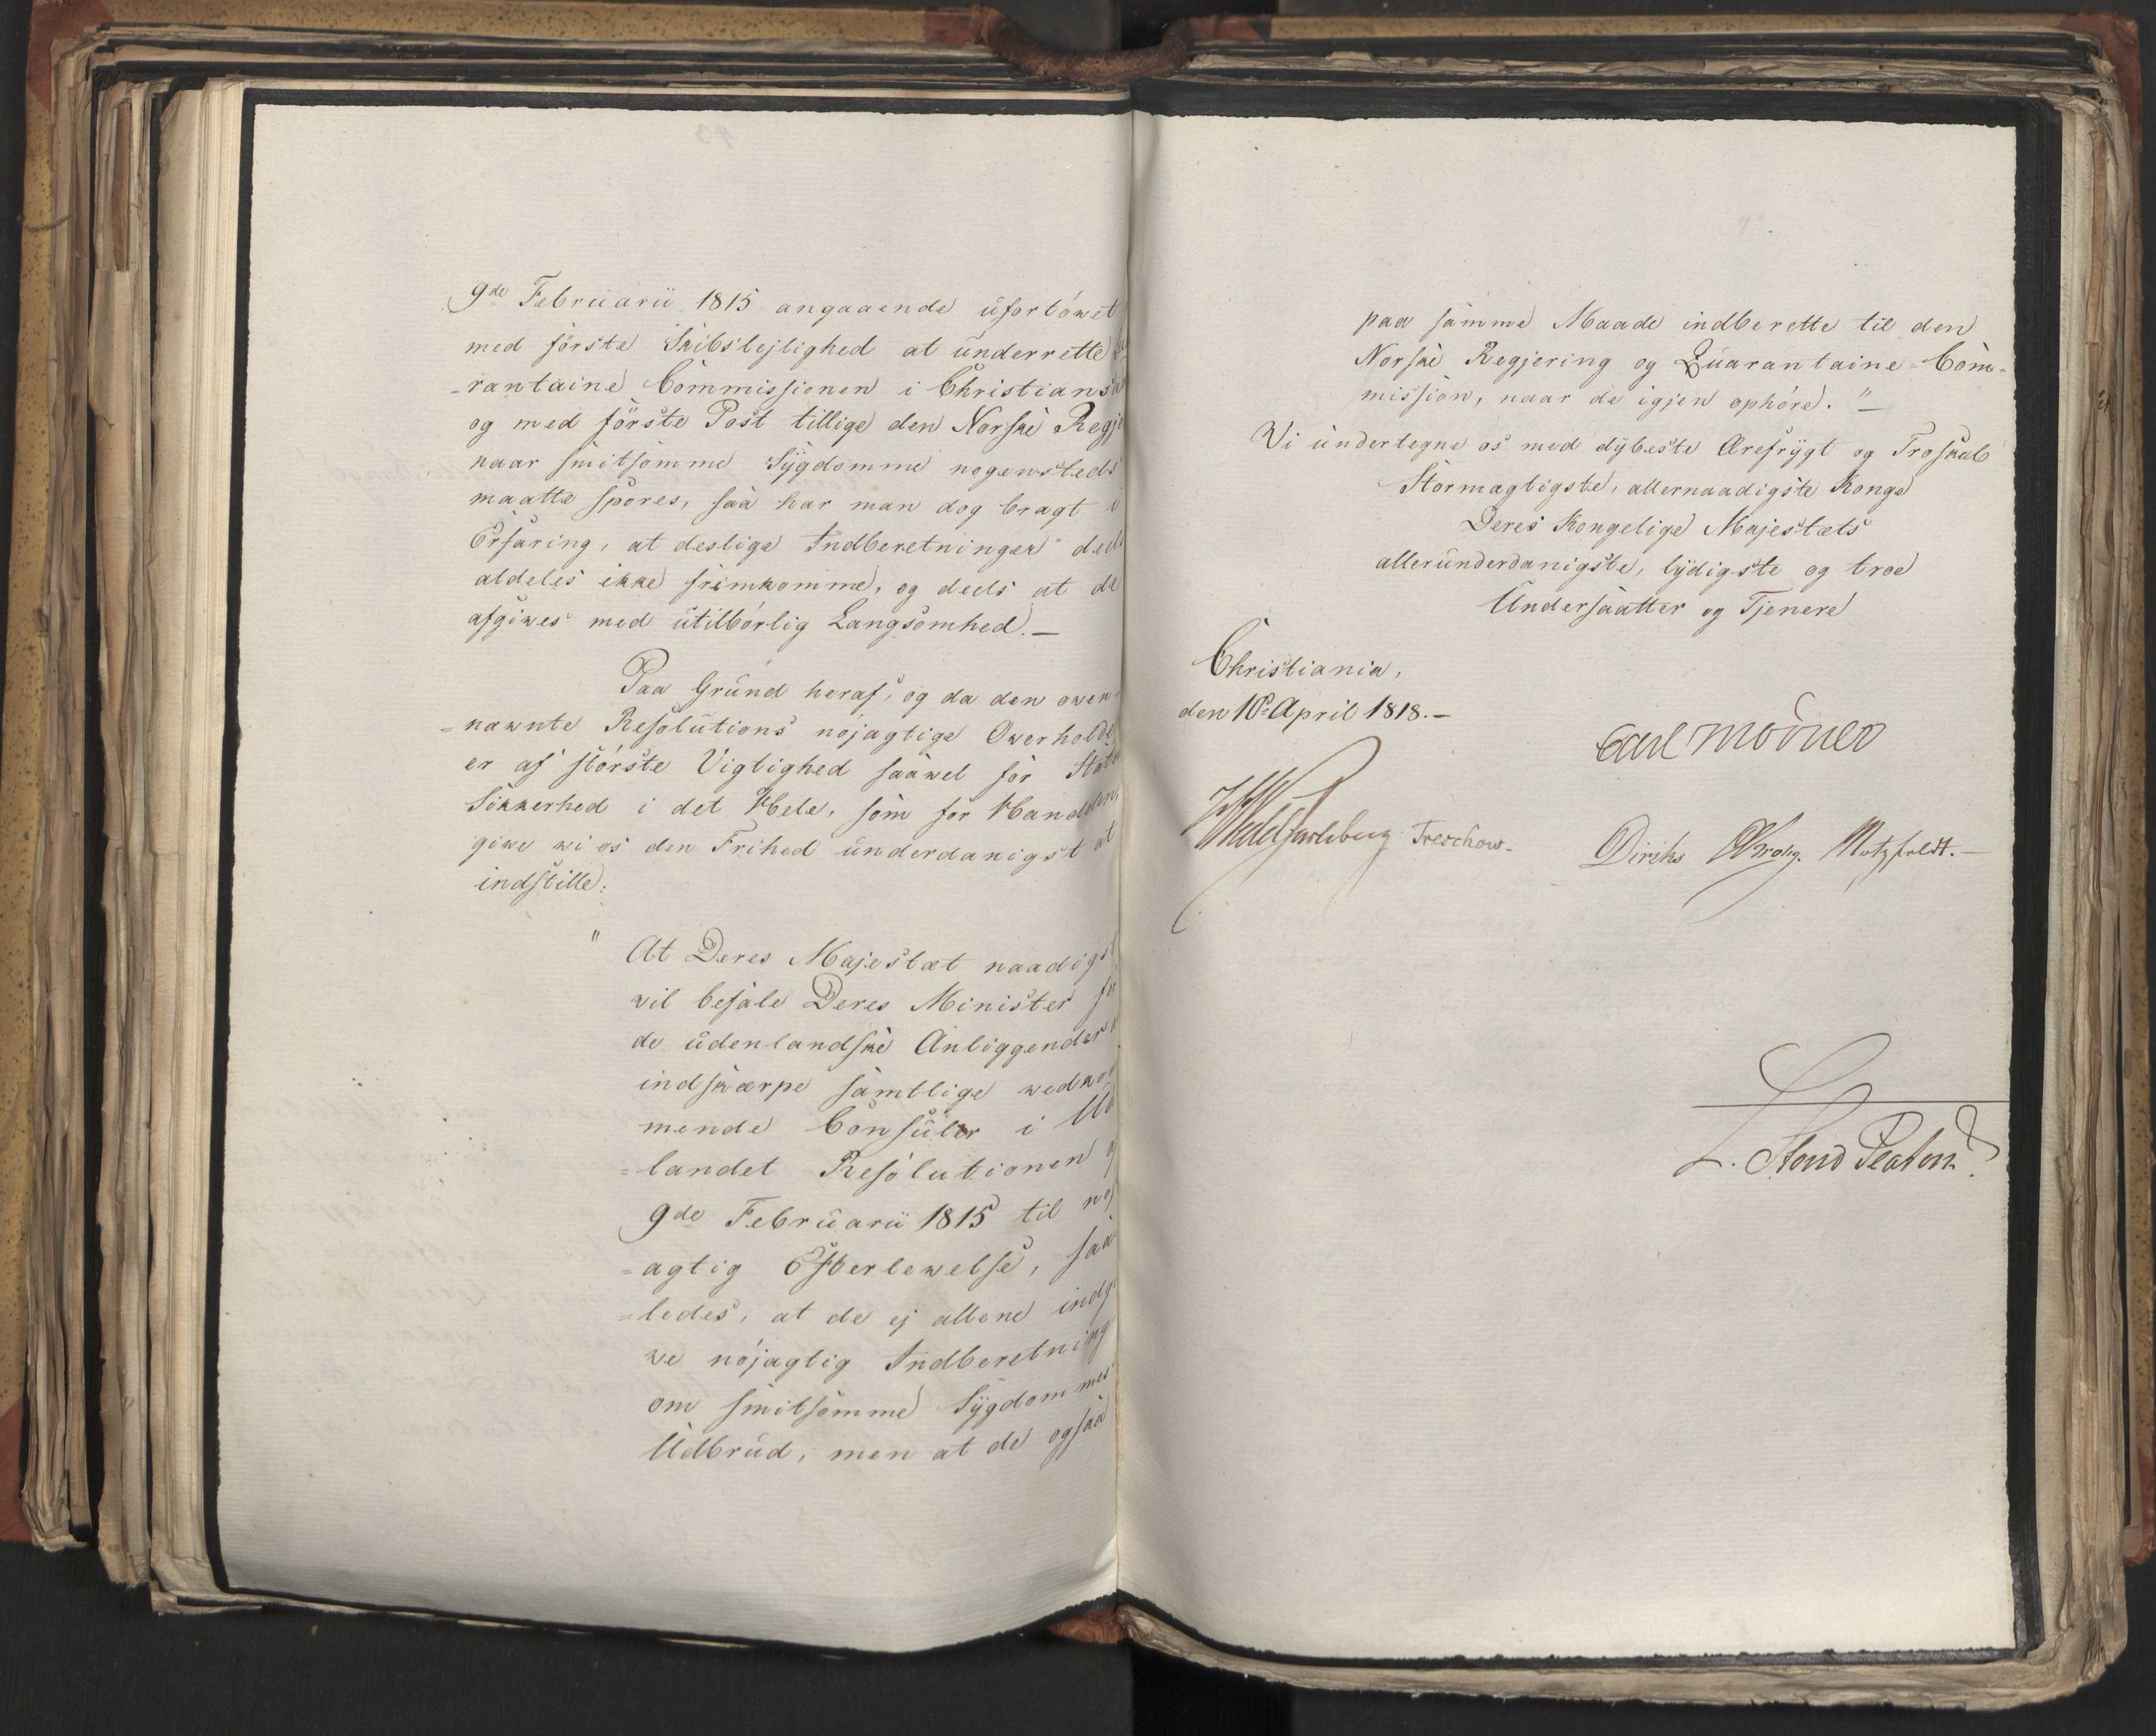 9de Februarii 1815 angaaende ufortöwet
med förste Skibslejlighed at underrette
-rantaine Commissionen i Christians
og med förste Post tillige den Norske Regje
naar smitsomme Sygdomme nogensteds
maatte spores, saa har man dog bragt i
Erfaring, at deslige Indberetninger deels
aldeles ikke fremkomme, og deels at de
afgiwes med utilbörlig Langsomhed. —
Paa Grund heraf, og da den owen-
=nævnte Resolutions nöjagtige Owerholde
er af störste Vigtighed saawel for Stats
Sikkerhed i det Hele, som for Handelen,
giwe wi os den Frihed underdanigst at
indstille:
" At Deres Majestæt naadigst
wil befale Deres Minister for
de udenlandske Anliggender
indskærpe samtlige wedkom
mende Consuler i Ud
=landet Resolutionen
9de Februarii 1815 til nöj
=agtig Efterlewelse, saa
=ledes, at de ej allene indgi
we nöjagtig Indberetning
om smitsomme Sygdommes
Udbrud, men at de ogsaa
paa samme Maade indberette til den
Norske Regjering og Quarantaine=Com=
mission, naar de igjen ophöre." —
Vi undertegne os med dybeste Ærefrygt og Troskab
Stormægtigste, allernaadigste Konge
Deres Kongelige Majestæts
allerunderdanigste, lydigste og troe
Undersaatter og Tjenere
Christiania,
den 10de April 1818. —
Carl Mörner
Wedel Jarlsberg Treschow. Diriks Krohg. Motzfeldt. —
L. Stoud Platou